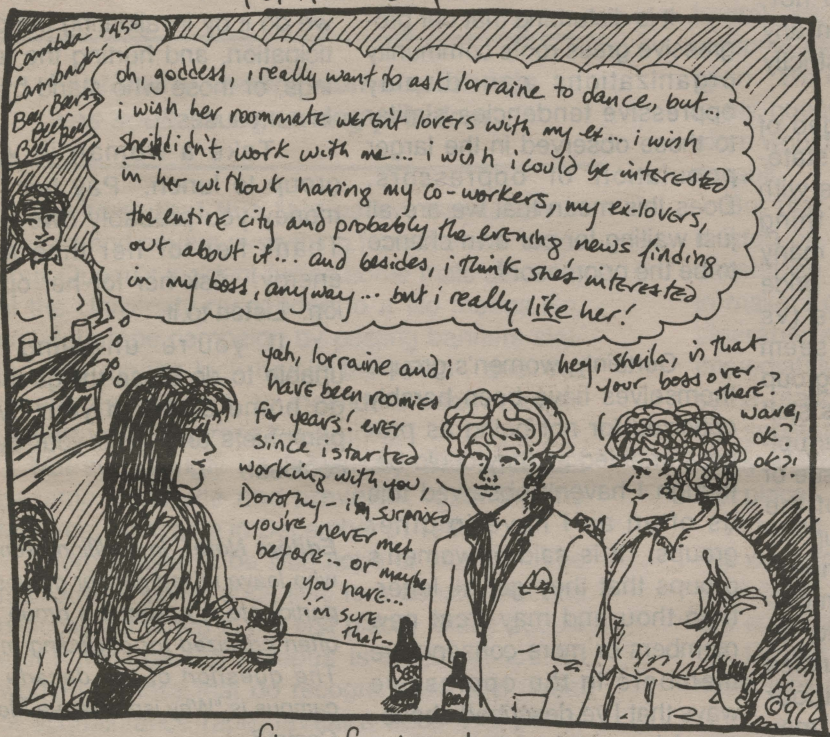 Lambda $4.50
Lambada
Beer Beers
Beer
Beer Beer
oh, goddess, i really want to ask lorraine to dance, but...
i wish her roommate weren't lovers with my ex... i wish
sheila didn't work with me... i wish i could be interested
in her without having my co-workers, my ex-lovers,
the entire city and probably the evening news finding
out about it... and besides, i think she's interested
in my boss, anyway... but i really like her!
yah, lorraine and i
have been roomies
for years! ever
since i started
working with you,
Dorothy - i'm surprised
you've never met
before... or maybe
you have...
i'm sure
that...
hey, sheila, is that
your boss over
there?
wave,
ok?
ok?!
Beer
Beer
©91